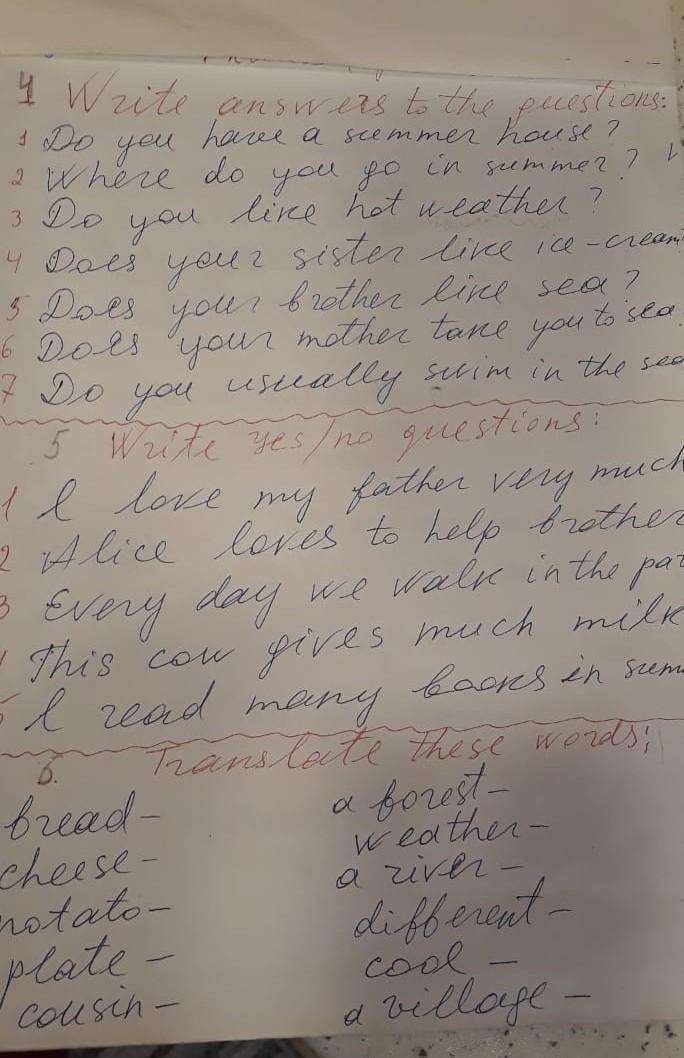 4 Write answers to the questions:
1 Do you have a summer house?
2 Where do you go in summer?
3 Do you like hot weather?
4 Does your sister like ice-cream
5 Does your brother like sea?
6 Does your mother take you to sea
7 Do you usually swim in the sea
5 Write yes/no questions:
1 I love my father very much
2 Alice loves to help brother
3 Every day we walk in the par
4 This cow gives much milk
5 I read many books in summ
6. Translate these words:
bread- a forest-
weather-
cheese- a river-
potato- different-
plate- cool-
cousin- a village-